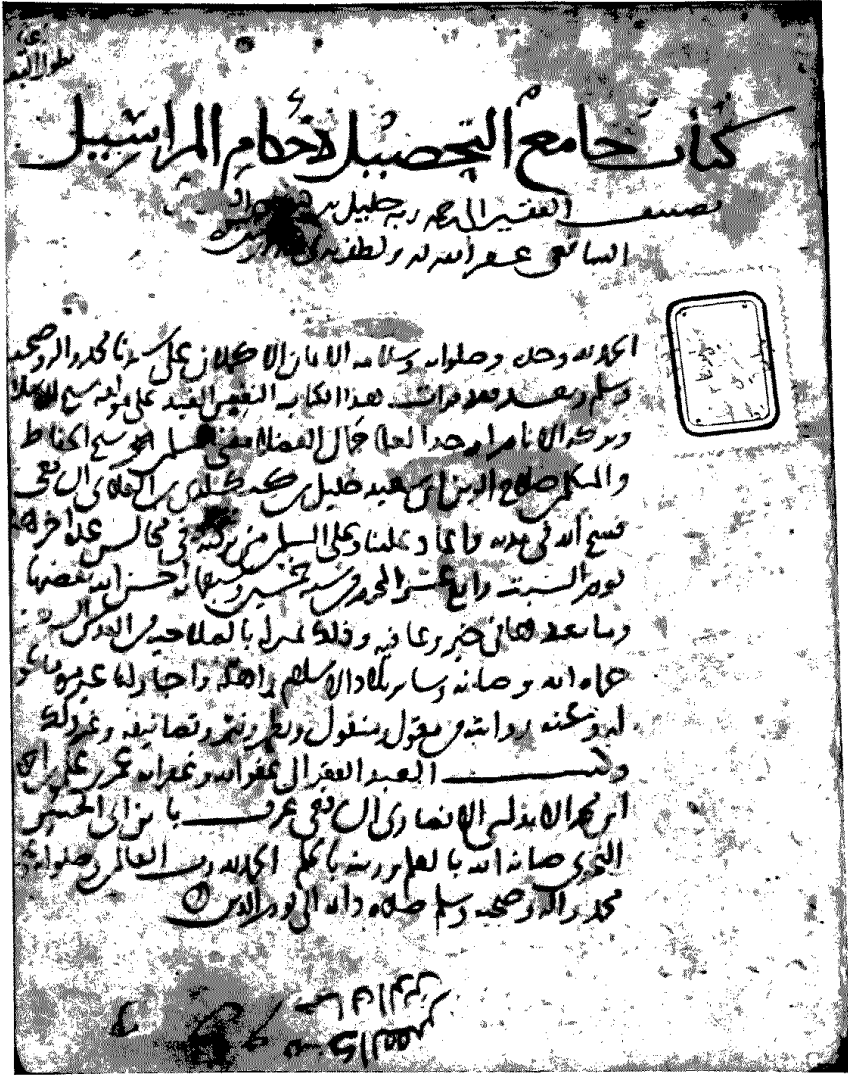 كتاب جامع التحصيل لاحكام المراسيل
تصنيف الفقير الى رحمة ربه خليل بن
الشافعي عفر الله له ولطف به
الحمد لله وحده وصلواته وسلامه الاتمان الاكملان على سيدنا محمد واله وصحبه
وسلم وبعد فقد قرات هذا الكتاب النفيس المفيد على مولفه شيخ الاسلام
وبركة الانام اوحد العلما جمال الفضلا مفتي المسلمين شيخ الحفاظ
والمتكلمين صلاح الدين ابي سعيد خليل بن كيكلدي بن العلائي الشافعي
فسح الله في مدته واعاد علينا وعلى المسلمين من بركته في مجالس عدة اخرها
يوم السبت رابع عشر المحرم من سنة خمسين احسن الله بعضها
وما بعدها في خير وعافيه وذلك بمنزله بالصلاحيه من القدس
حماه الله وصانه وساير بلاد الاسلام واهله واجاز لنا غير مره ما يجوز
له وعنه روايته من معقول ومنقول ونظم ونثر وتصانيفه وغير ذلك
وكتب العبد الفقير الى عفو الله وغفرانه عمر بن علي بن احمد
ابن محمد الاندلسي الانصاري الشافعي عرف بابن ابي الحسن
النحوي صانه الله بالعلم وزينه بالحلم الحمد لله رب العالمين وصلواته على
محمد واله وصحبه وسلم صلاه دائمة الى يوم الدين